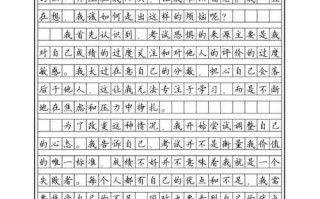 在想，我该如何走出这样的烦恼呢？
我首先认识到，考试恐惧的来源主要是我
对自己成绩的过度关注和对他人的评价的过度
敏感。我太过在意自己的分数，担心自己会落
后于他人，这让我无法专注于学习，而是不断
地在焦虑和压力中挣扎。
为了改变这种情况，我开始尝试调整自己
的心态。我告诉自己，考试并不是衡量我价值
的唯一标准，成绩不好并不意味着我就是一个
失败者。每个人都有自己的优点和不足，我需